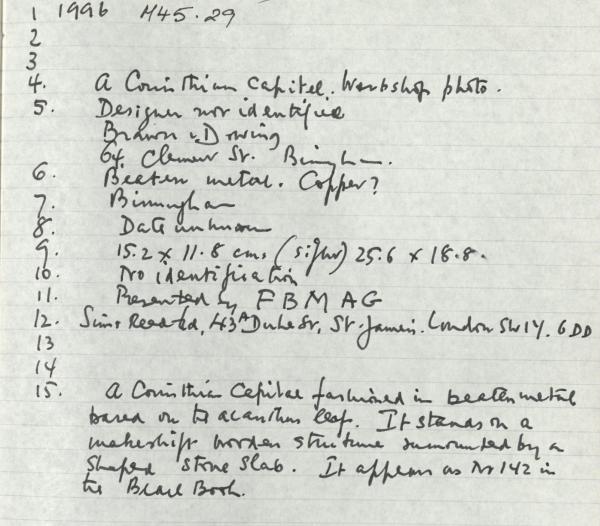 1 1996 M45.29
2
3
4. A Corinthian capitel. Workshop photo.
5. Designer not identified
Brawn & Downing
64. Clement St. Birmingham.
6. Beaten metal. Copper?
7. Birmingham
8. Date unknown
9. 15.2 x 11.8 cms (sight) 25.6 x 18.8.
10. No identification
11. Presented by FBMAG
12. Sims Reed Ltd, 43A Duke St, St. James's. London SW1Y. 6DD
13
14
15. A Corinthian Capital fashioned in beaten metal
based on the acanthus leaf. It stands on a
makeshift wooden structure surmounted by a
shaped stone slab. It appears as No 142 in
the Black Book.